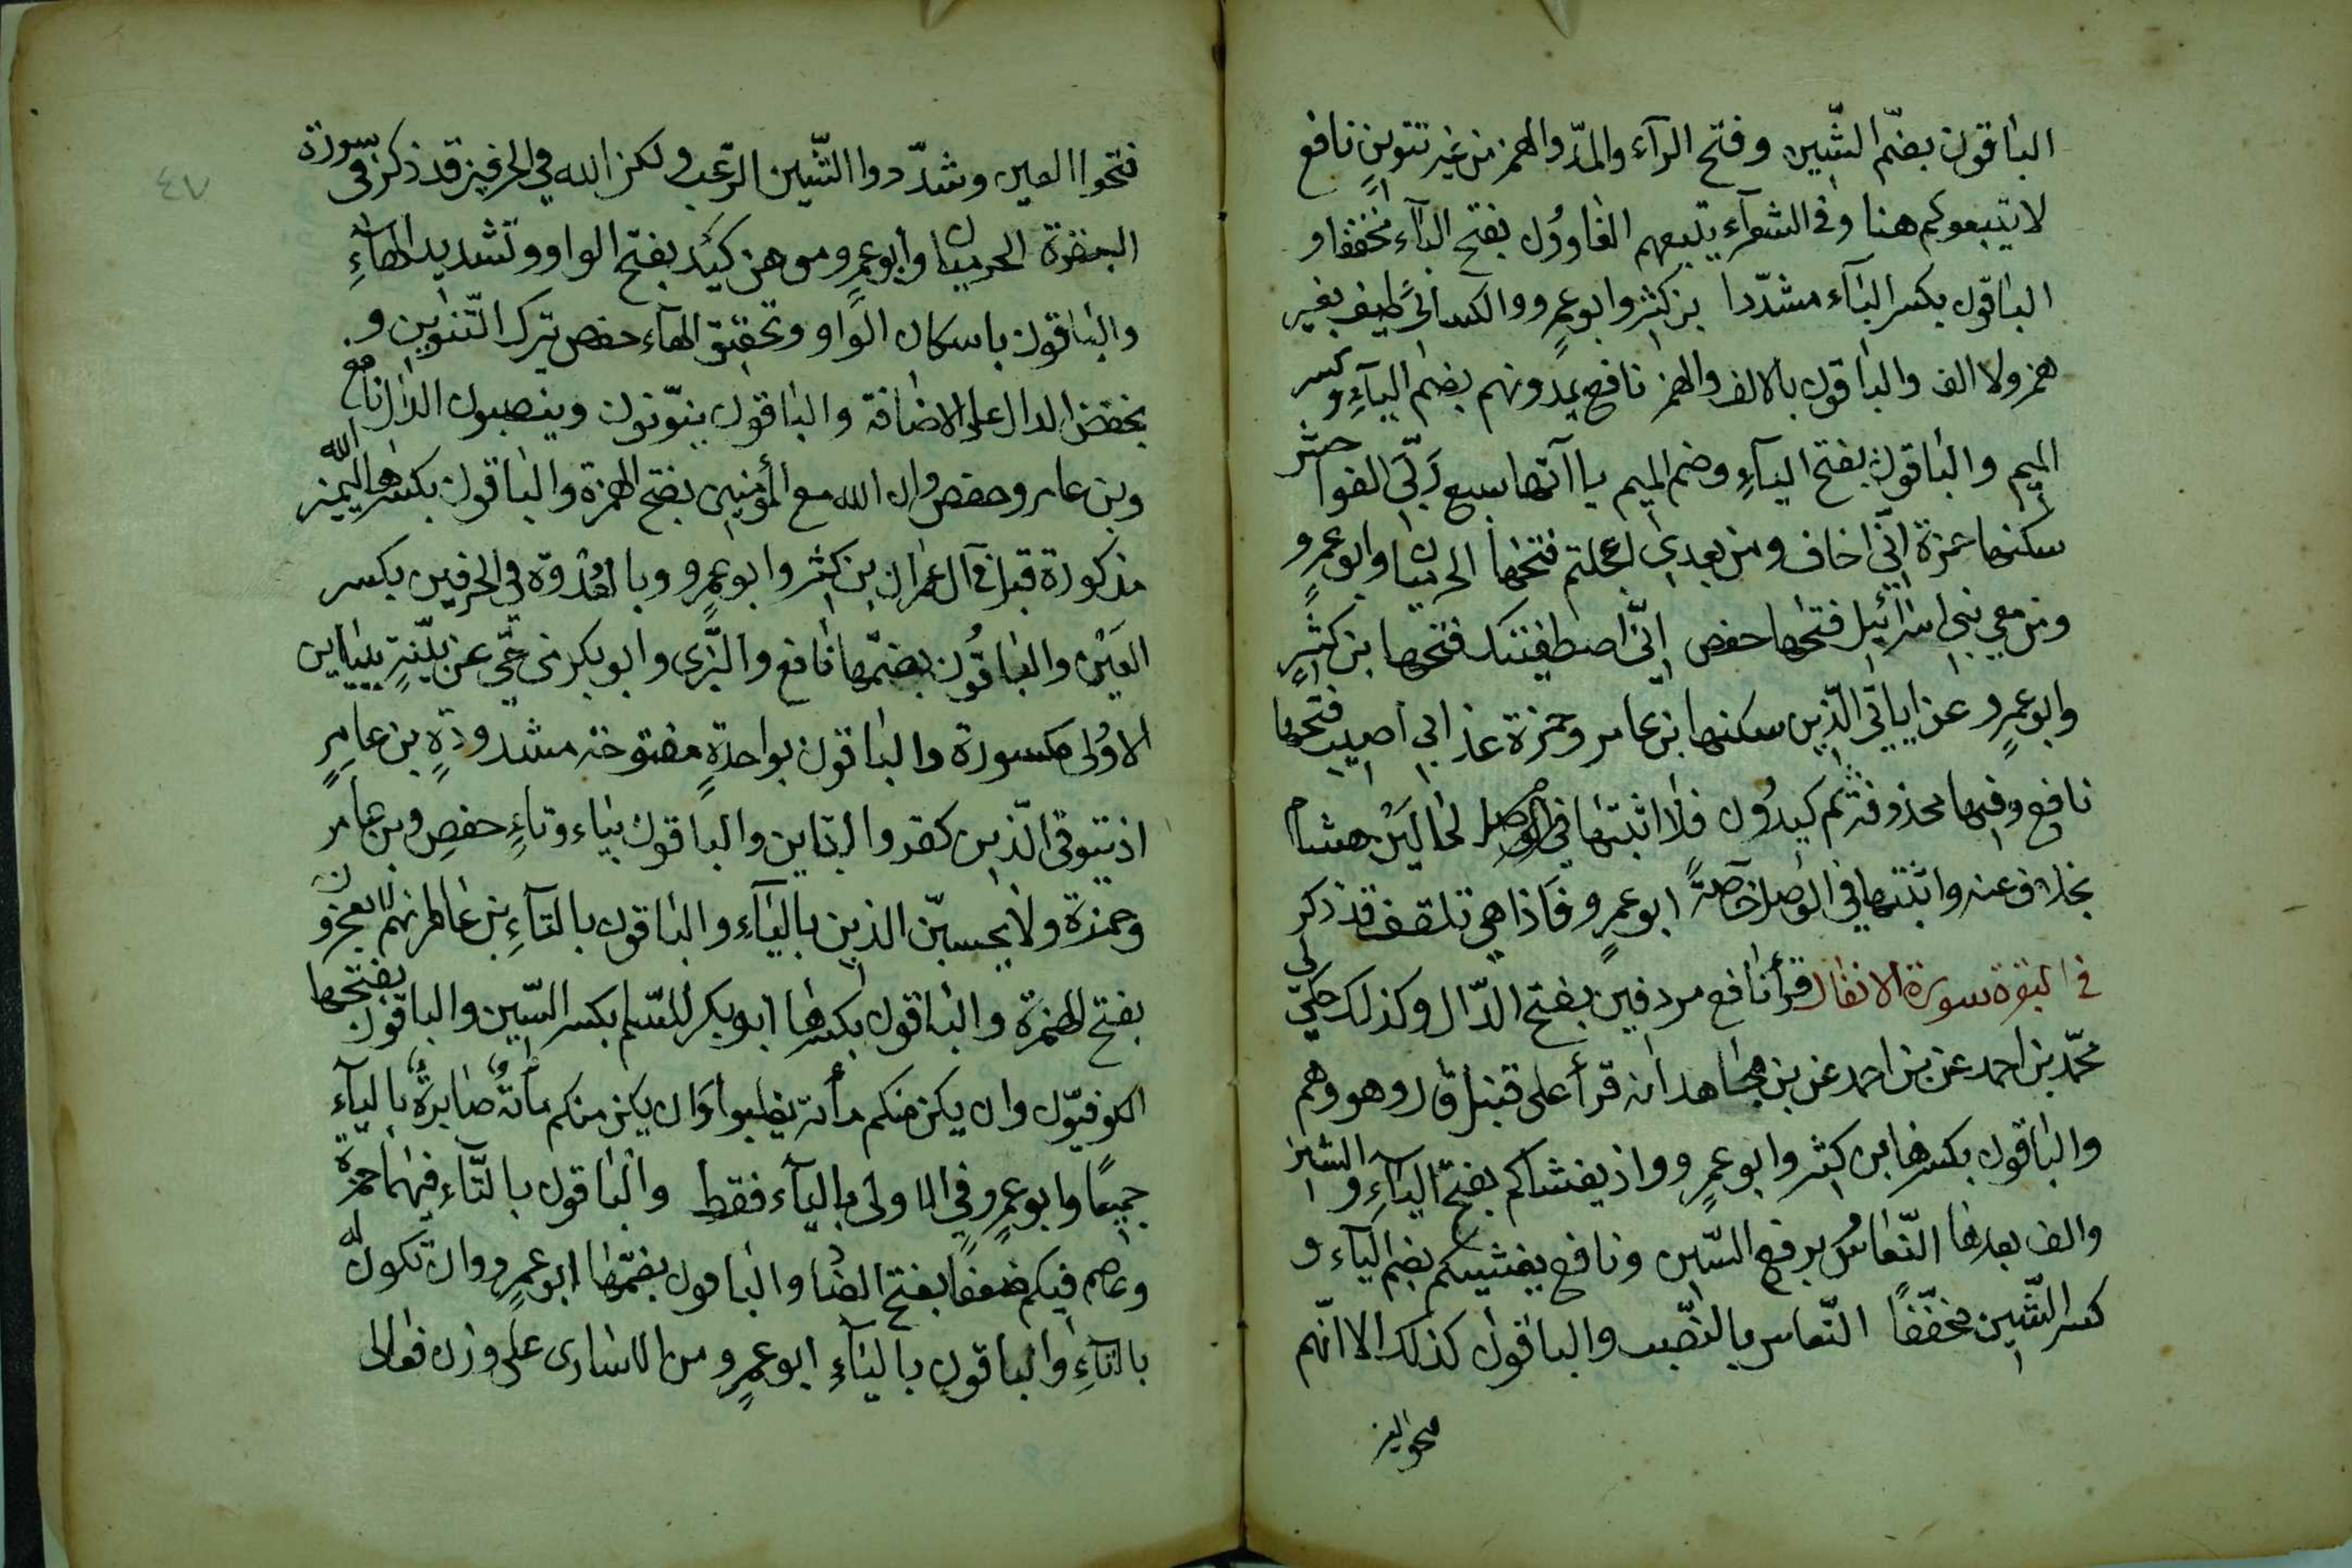 الباقون بضمّ الشّين وفتح الرآء والمدّ والهمز من غير تنوين نافع
لا يتبعوكم هنا وفي الشعرآء يتبعهم الغاوون بفتح البآء مخففا و
الباقون بكسر البآء مشدّدا بن كثير وابو عمرو والكسائي طيف بغير
همز ولا الف والباقون بالالف والهمز نافع يمدونهم بضم اليآء وكسر
الميم والباقون بفتح اليآء وضم الميم ياآتها سبع ربّي الفواحش
سكنها حمزة انّي اخاف ومن بعدي اعجلتم فتحها الحرميان وابو عمرو
ومن معي بني اسرائيل فتحها حفص انّي اصطفيتك فتحها بن كثير
وابو عمرو عن اياتي الّذين سكنها بن عامر وحمزة عذابي اصيب فتحها
نافع وفيها محذوفة ثم كيدون فلا اثبتها في الوصل لحاليَن هشام
بخلاف عنه واثبتها في الوصل خاصّة ابو عمرو فاذا هي تلقف قد ذكر
في البقرة سورة الانفال قرأ نافع مردفين بفتح الدّال وكذلك حكى لي
محّمد بن احمد عن بن احمد عن بن مجاهد انه قرأ على قنبل قال وهو وهم
والباقون بكسرها بن كثير وابو عمرو واذ يغشاكم بفتح اليآء والشين
والف بعدها النّعاسُ برفع السّين ونافع يغشيكم بضم اليآء و
كسر الشّين مخفّفًا النّعاس بالنّصب والباقون كذلك الا انّهم
فتحوا العين
٤٧
فتحوا العين وشدّدوا الشّين الرّعب ولكن الله في الحرفين قد ذكر في سورة
البقرة الحرميان وابو عمرو موهن كيد بفتح الواو وتشديد الهآء
والباقون باسكان الواو وتخفيق الهآء حفص يترك التّنوين و
بخفض الدال على الاضافة والباقون ينوّنون وينصبون الدال نافع
وبن عامر وحفص وان الله مع المؤمنين بفتح الهمزة والباقون بكسرها ليميز الله
مذكورة قبل في آل عمران بن كثير وابو عمرو وبالعدوة في الحرفين بكسر
العَيْن والباقون بضمّها نافع والبَزّى وابو بكر من حيّ عن بيّنة بيآئين
الاولى مكسورة والباقون بواحدة مفتوحة مشدودة بن عامر
اذ يتوفى الّذين كفروا بتاين والباقون بياء وتاء حفص وبن عامر
وحمزة ولا يحسبنّ الذين باليآء والباقون بالتآء بن عامر انهم لا يعجزون
بفتح الهمزة والباقون بكسرها ابو بكر للسّلم بكسر السّين والباقون بفتحها
الكوفيّون وان يكن منكم مأئة يغلبوا وان يكن منكم مأئة صابرة باليآء
جميعًا وابو عمرو في الاولى باليآء فقط والباقون بالتّاء فيهما حمزة
وعاصم فيكم ضعفا بفتح الضاد والباقون بضمّها ابو عمرو وان تكون له
بالتآء والباقون باليآء ابو عمرو من الاسارى على وزن فعالى